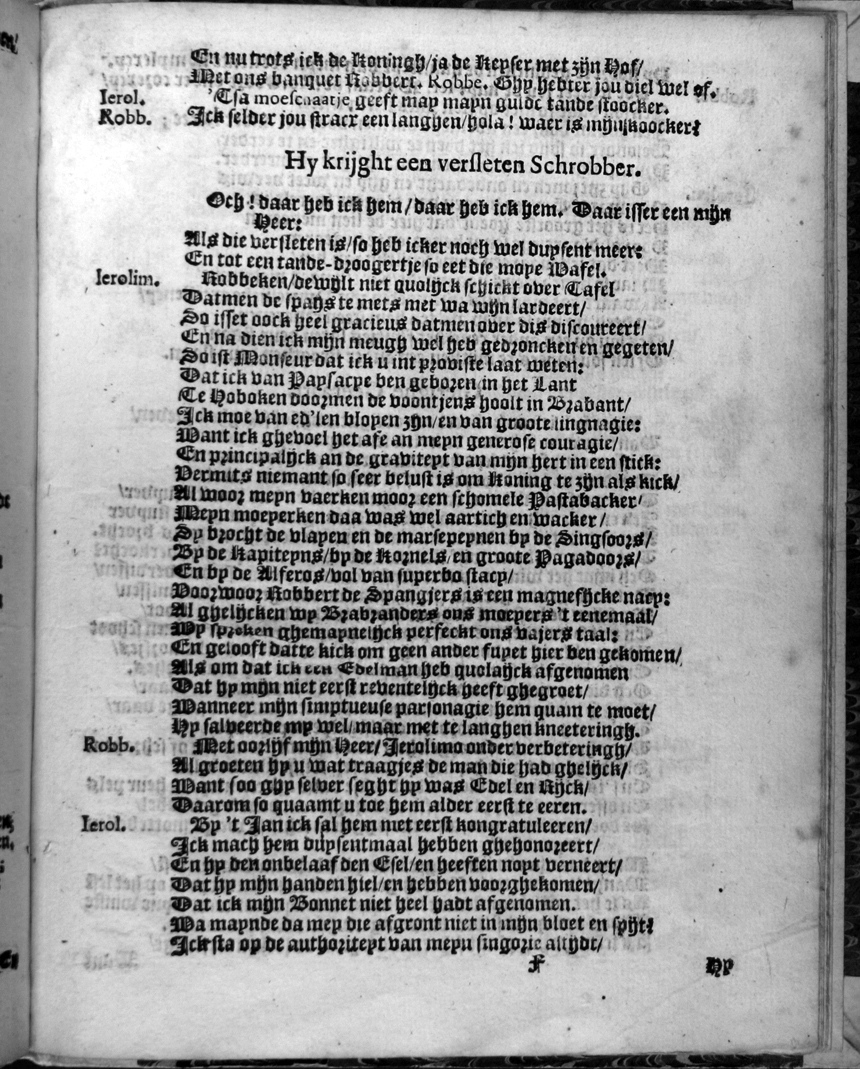 En nu trots ick de Koningh/ja de Keyser met zijn Hof/
Met ons banquet Robbert. Robbe. Ghy hebter jou diel wel of.
Ierol. 'Tsa moeschaatje geeft may mayn gulde tande stoocker.
Robb. Ick selder jou stracx een langhen/hola! waer is mijn koocker?
Hy krijght een versleten Schrobber.
Och! daar heb ick hem/daar heb ick hem. Daar isser een mijn
Heer:
Als die versleten is/so heb icker noch wel duysent meer:
En tot een tande-droogertje so eet die moye Wafel.
Ierolim. Robbeken/dewijlt niet quolijck schickt over Tafel
Datmen de spays te mets met wa wijn lardeert/
So isset oock heel gracieus datmen over dis discoureert/
En na dien ick mijn meugh wel heb gedroncken en gegeten/
So ist Monseur dat ick u int proviste laat weten:
Dat ick van Paysacye ben geboren in het Lant
Te Hoboken doormen de voontjens hoolt in Brabant/
Ick moe van ed'len blopen zijn/en van groote lingnagie:
Want ick ghevoel het ase an meyn generose couragie/
En principalijck an de graviteyt van mijn hert in een stick:
Vermits niemant so seer belust is om Koning te zijn als kick/
Al woor meyn vaerken moor een schomele Pastabacker/
Meyn moeperken daa was wel aartich en wacker/
Sy brocht de vlayen en de marsepeynen by de Singjoors/
By de Kapiteyns/by de Kornels/en groote Pagadoors/
En by de Alferos/vol van superbo stacy/
Voorwoor Robbert de Spangjers is een magnefijcke nacy:
Al ghelijcken wy Brabranders ons moeyers 't eenemaal/
Wy spreken ghemaynelijck perfeckt ons vajers taal:
En gelooft datte kick om geen ander fuyet hier ben gekomen/
Als om dat ick een Edelman heb quolaijck afgenomen
Dat hy mijn niet eerst reventelijck heeft ghegroet/
Wanneer mijn simptueuse parsonagie hem quam te moet/
Hy salveerde my wel/maar met te langhen kneeteringh.
Robb. Met oorlijf mijn Heer/Jerolimo onder verbeteringh/
Al groeten hy u wat traagjes de man die had ghelijck/
Want soo ghy selver seght hy was Edel en Rijck/
Daarom so quaamt u toe hem alder eerst te eeren.
Ierol. By 't Jan ick sal hem met eerst kongratuleeren/
Ick mach hem duysentmaal hebben ghehonoreert/
En hy den onbelaafden Esel/en heeften noyt verneert/
Dat hy mijn handen hiel/en hebben voorghekomen/
Dat ick mijn Bonnet niet heel hadt afgenomen.
Wa maynde da mey die afgront niet in mijn bloet en spijt?
Ick sta op de authoriteyt van meyn singorie altijdt/
F Hy